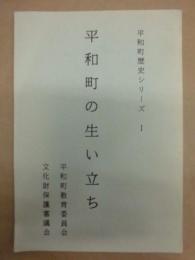 平和町歴史シリーズ 1
平和町の生い立ち
平和町教育委員会
文化財保護審議会